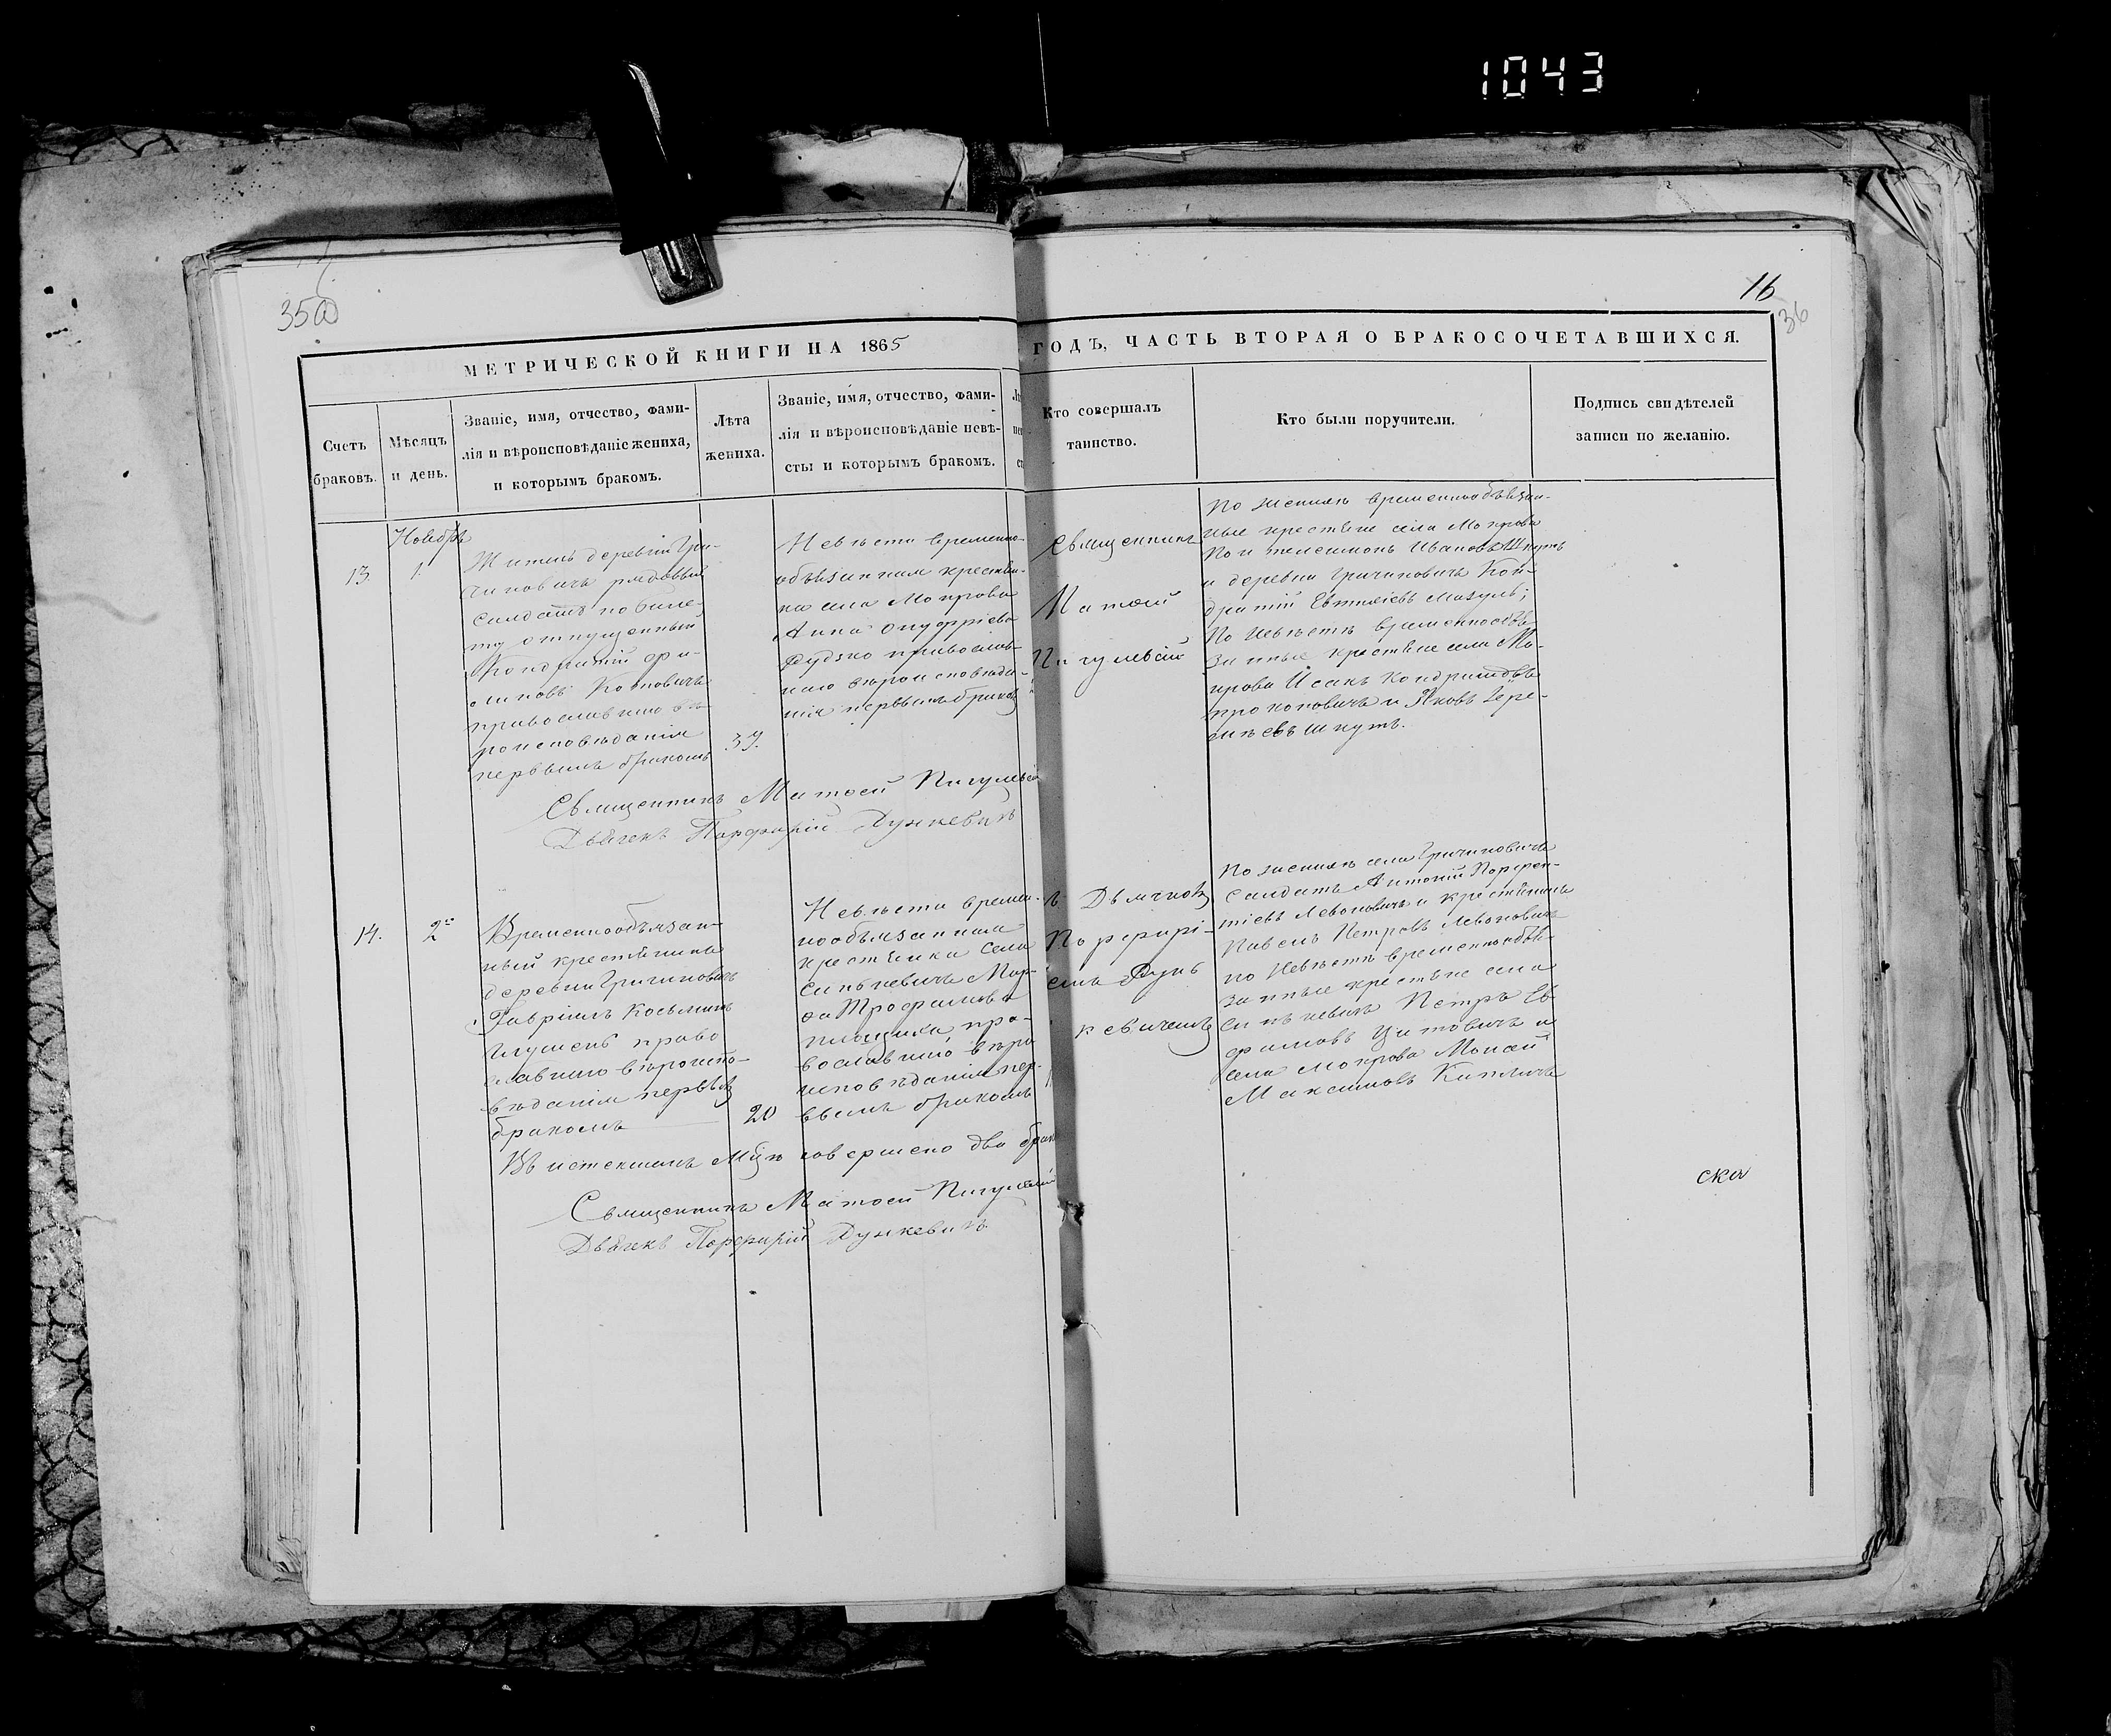 1043
35об
16
36
МЕТРИЧЕСКОЙ КНИГИ НА 1865
ГОДЪ, ЧАСТЬ ВТОРАЯ О БРАКОСОЧЕТАВШИХСЯ.
Счетъ
браковъ.
Мѣсяцъ
и день.
Званіе, имя, отчество, фами-
лія и вѣроисповѣданіе жениха,
и которымъ бракомъ.
Лѣта
жениха.
Званіе, имя, отчество, фами-
лія и вѣроисповѣданіе невѣ-
сты и которымъ бракомъ.
Кто совершалъ
таинство.
Кто были поручители.
Подпись свидѣтелей
записи по желанію.
13.
Ноября
1.
Житель деревни Гри-
чиновичъ рядовый
солдатъ по биле-
ту отпущенный
Кондратій Фи-
липовъ
православнаго вѣ-
роисповѣданія
первымъ бракомъ
37.
Невѣста временно-
обязанная крестьян-
ка села Мокрова
Анна Онуфріева
Дудзко православ-
наго вѣроисповѣда-
нія первымъ бракомъ
Священникъ
Матѳей
Пигулевскій
По женихѣ временнообязан-
ные крестьяне села Мокрова
Пантелеимонъ Ивановъ Шкутъ
и деревни Гричиновичъ Кон-
дратій Мазуль;
По Невѣстѣ временнообя-
занные крестьяне села Мо-
крова Исакъ Кондратовъ
Прокоповичъ и Яковъ Іере-
міевъ Шкутъ.
Священникъ Матѳей Пигулевскій
Дьячекъ Порфирій Дункевичъ
14.
2го
Временнообязан-
ный крестьянинъ
деревни Гричиновичъ
Гавріилъ Косьминъ
право
славнаго вѣроиспо-
вѣданія первымъ
бракомъ
20
Невѣста времен-
нообязанная
крестьянка села
Синкевичъ Мар-
ѳа Трофимова
пра-
вославнаго вѣро
исповѣданія пер-
вымъ бракомъ
съ Дьячкомъ
Порфирі-
емъ Дун
кевичемъ
По женихѣ села Гричиновичъ
солдатъ Антоній Парфен-
тіевъ Левоновичъ и крестьянинъ
Павелъ Петровъ Левоновичъ
по Невѣстѣ временнообя-
занные крестьяне села
Синкевичъ Петръ Ев-
фимовъ Цитовичъ и
села Мокрова Моисей
Максимовъ
Въ истекшемъ мцѣ совершено два брака
Священникъ Матѳей Пигулевскій
Дьячекъ Порфирій Дункевичъ
ска